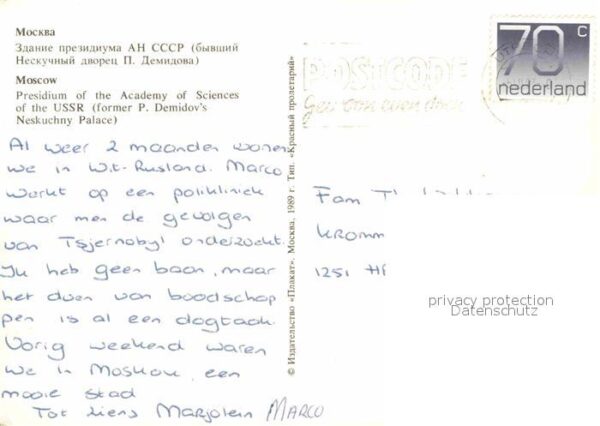 Москва
Здание президиума АН СССР (бывший
Нескучный дворец П. Демидова)
Moscow
Presidium of the Academy of Sciences
of the USSR (former P. Demidov's
Neskuchny Palace)
Al weer 2 maanden wonen
we in Wit-Rusland. Marco
werkt op een polikliniek
waar men de gevolgen
van Tsjernobyl onderzoekt.
Ik heb geen baan, maar
het doen van boodschap
pen is al een dagtaak.
Vorig weekend waren
we in Moskou, een
mooie stad
Tot ziens Marjolein MARCO
© Издательство «Плакат», Москва, 1989 г. Тип. «Красный пролетарий»
POSTCODE
Gewoon even doen
70 c
nederland
Fam
Kromm
1251
privacy protection
Datenschutz